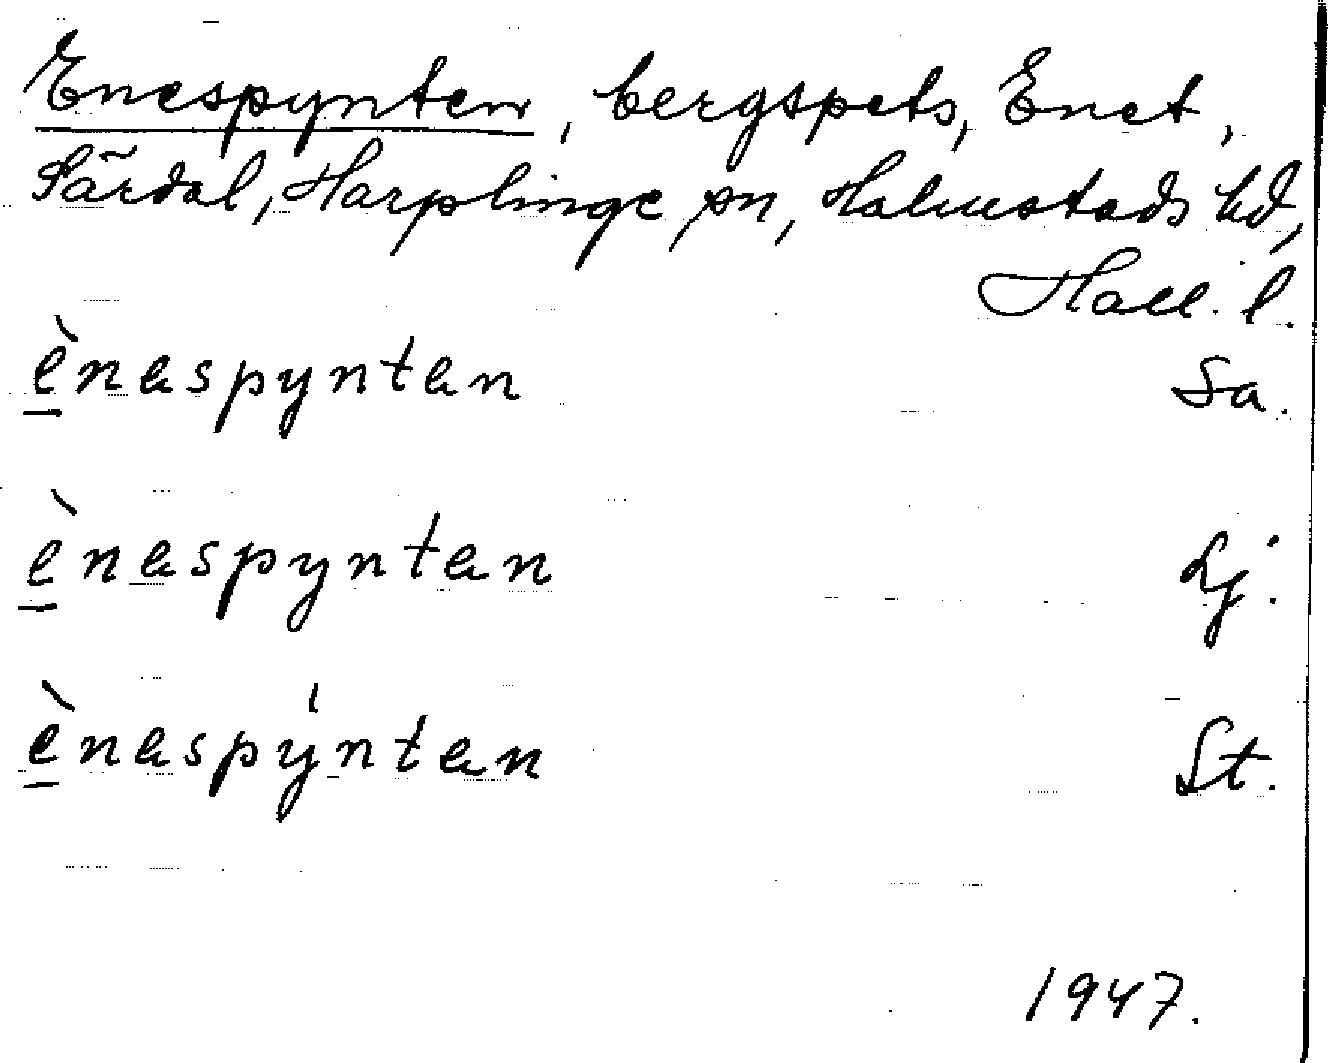 Enespynten, bergspets, Enet,
Särdal, Harplinge sn, Halmstads hd,
Hall. l.
ènəspyntən Sa.
ènəspyntən Lj.
ènəspýntən St.
1947.